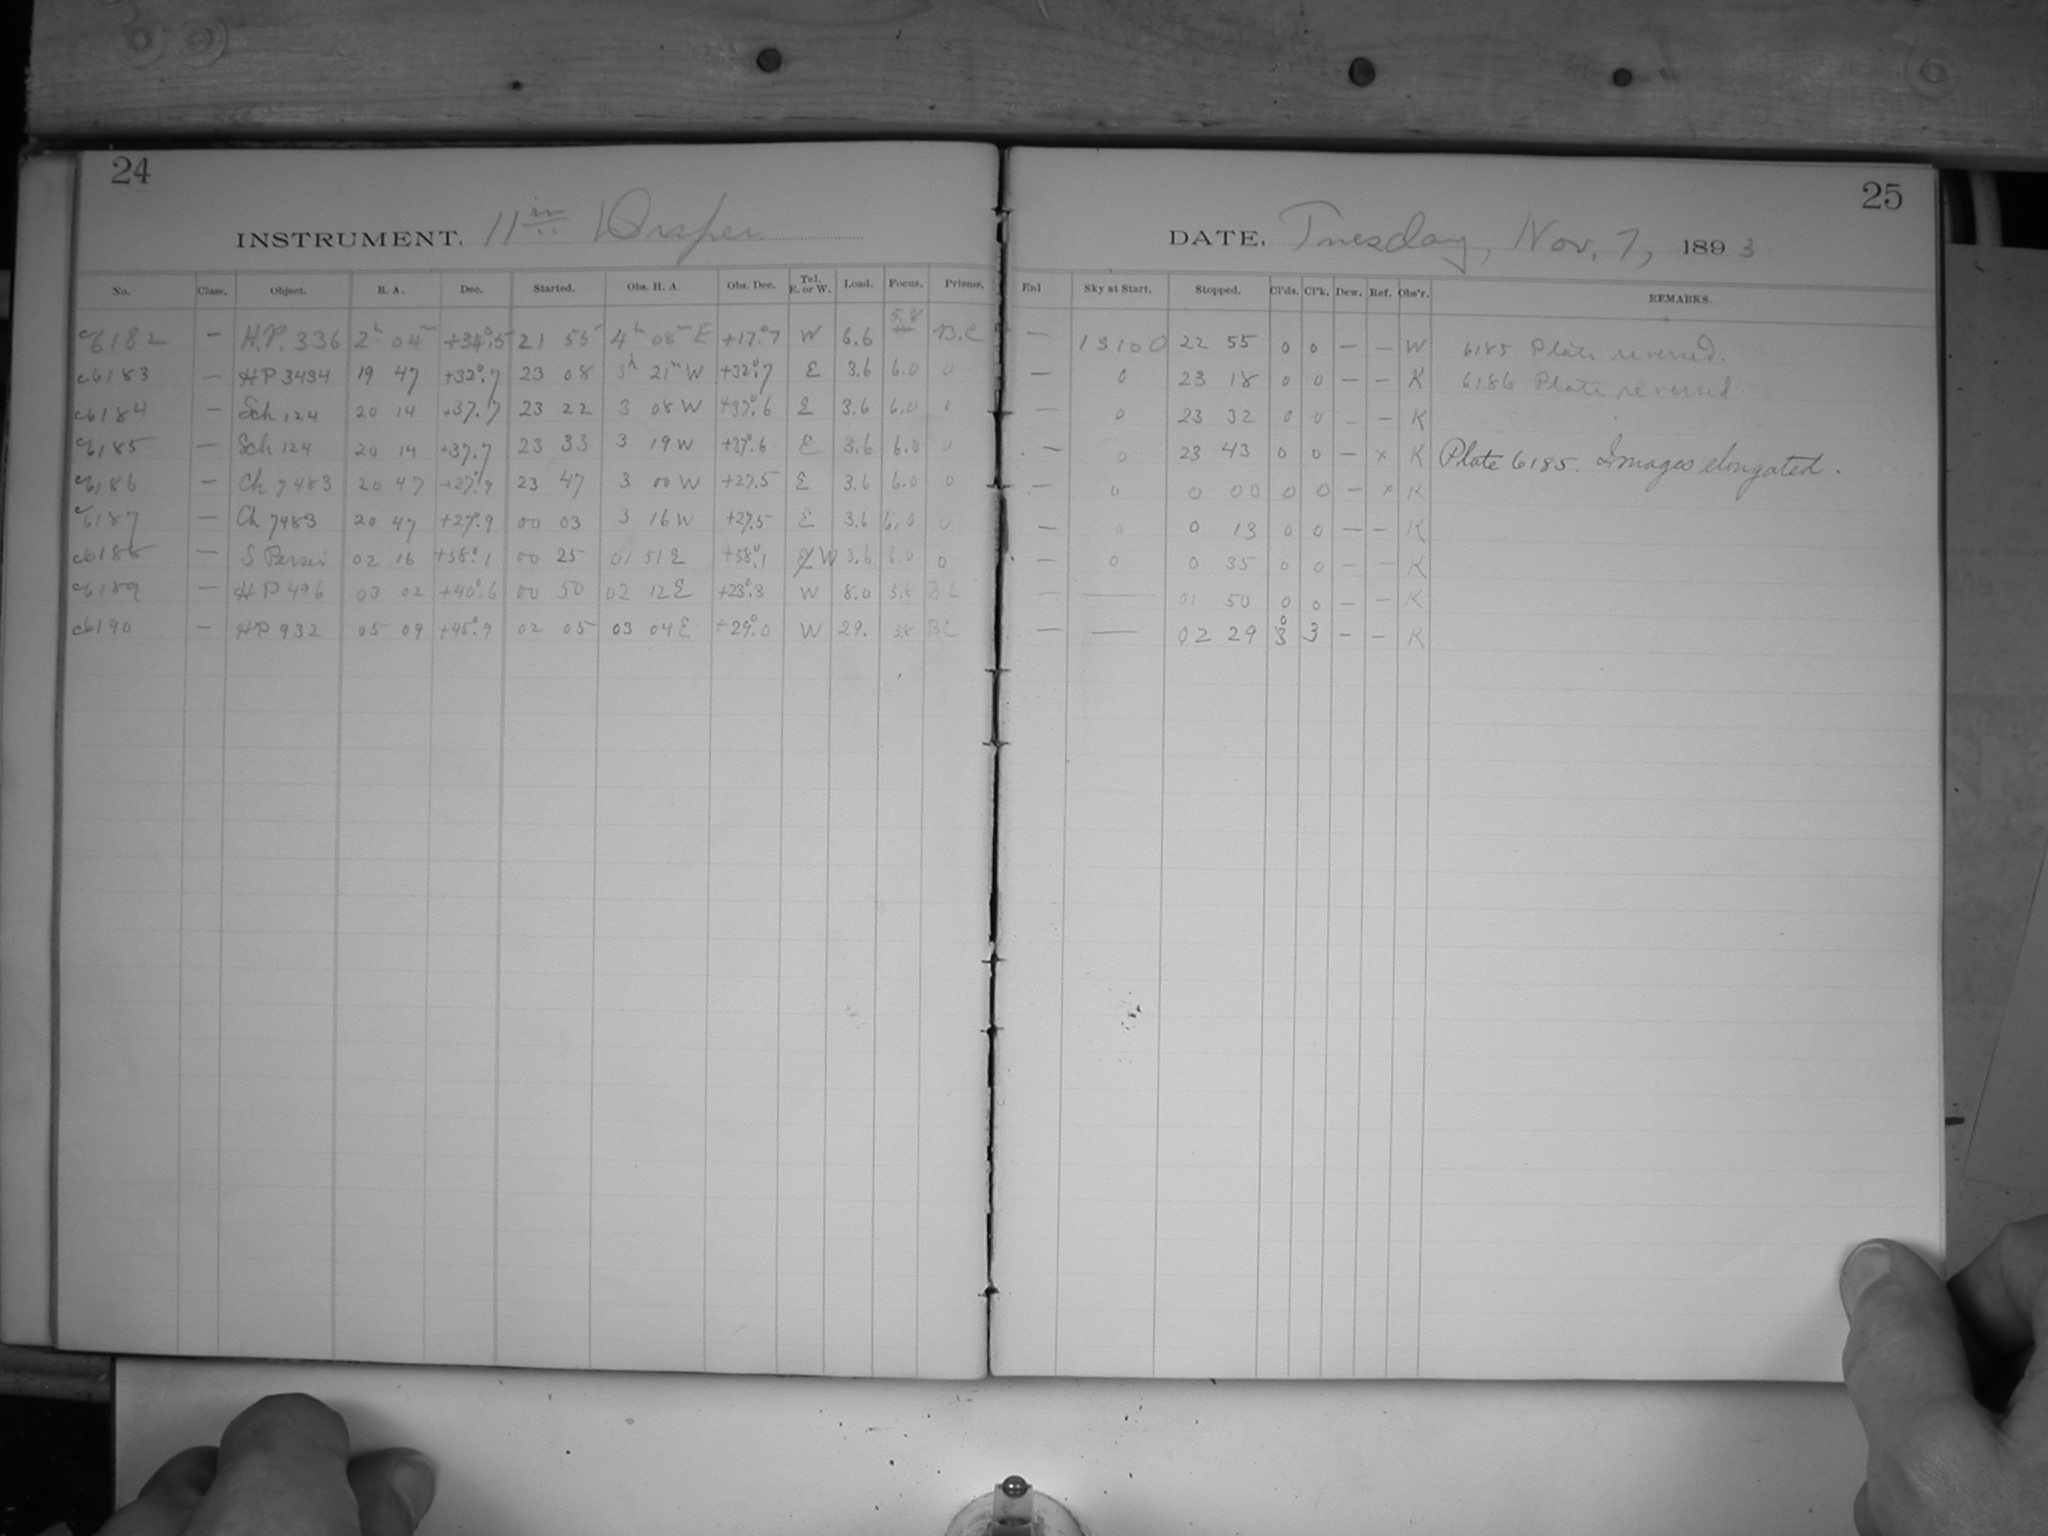 24
INSTRUMENT. 11in Draper
No. Class. Object. R. A. Dec. Started. Obs. H. A. Obs. Dec. Tel. E. or W. Load. Focus. Prisms.
c6182 — H.P. 336 2h 04m +34°.5 21 55 4h 08m E +17°.7 W 6.6 5.8 B.C
c6183 — HP 3434 19 47 +32°.7 23 08 3h 21m W +32°.7 E 3.6 6.0 0
c6184 — Sch 124 20 14 +37.7 23 22 3 08 W +37°.6 E 3.6 6.0 0
c6185 — Sch 124 20 14 +37.7 23 33 3 19 W +37°.6 E 3.6 6.0 0
c6186 — Ch 7483 20 47 +27°.9 23 47 3 00 W +27.5 E 3.6 6.0 0
c6187 — Ch 7483 20 47 +27°.9 00 03 3 16 W +27.5 E 3.6 6.0 0
c6188 — S Persei 02 16 +58°.1 00 25 01 51 E +58°.1 W 3.6 6.0 0
c6189 — HP 496 03 02 +40°.6 00 50 02 12 E +23°.3 W 8.0 5.8 BC
c6190 — HP 932 05 09 +45°.9 02 05 03 04 E +29°.0 W 29. 5.8 BC
25
DATE, Tuesday, Nov. 7, 1893
Enl Sky at Start. Stopped. Cl'ds. Cl'k. Dew. Ref. Obs'r. REMARKS.
— 13100 22 55 0 0 — — W 6185 Plate reversed.
— 0 23 18 0 0 — — K 6186 Plate reversed
— 0 23 32 0 0 — — K
— 0 23 43 0 0 — x K Plate 6185. Images elongated.
— 0 0 00 0 0 — x K
— 0 0 13 0 0 — — K
— 0 0 35 0 0 — — K
— — 01 50 0 0 — — K
— — 02 29 3 3 — — K